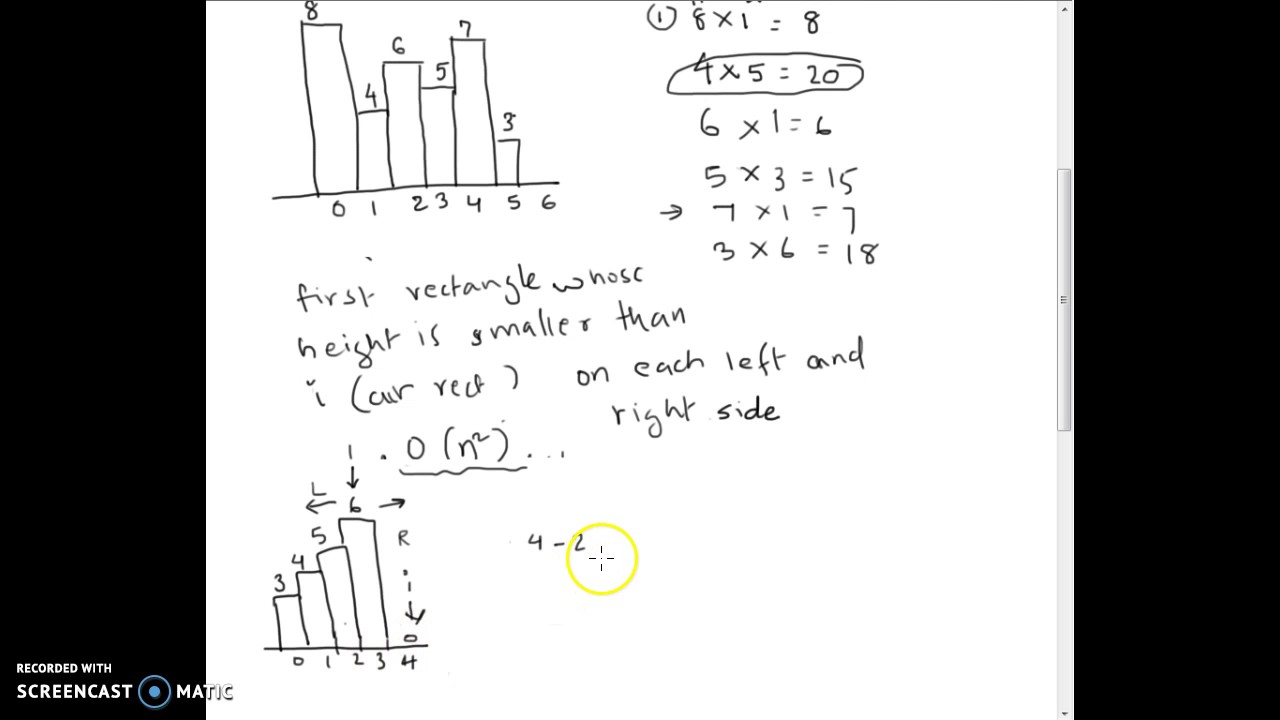 8
7
6
5
4
3
0 1 2 3 4 5 6
① 8 × 1 = 8
4 × 5 = 20
6 × 1 = 6
5 × 3 = 15
→ 7 × 1 = 7
3 × 6 = 18
first rectangle whose
height is smaller than
i (curr rect) on each left and
right side
. O(n²) . . .
L
← 6 →
5
R
4
3
i
0
0 1 2 3 4
4 - 2
RECORDED WITH
SCREENCAST MATIC